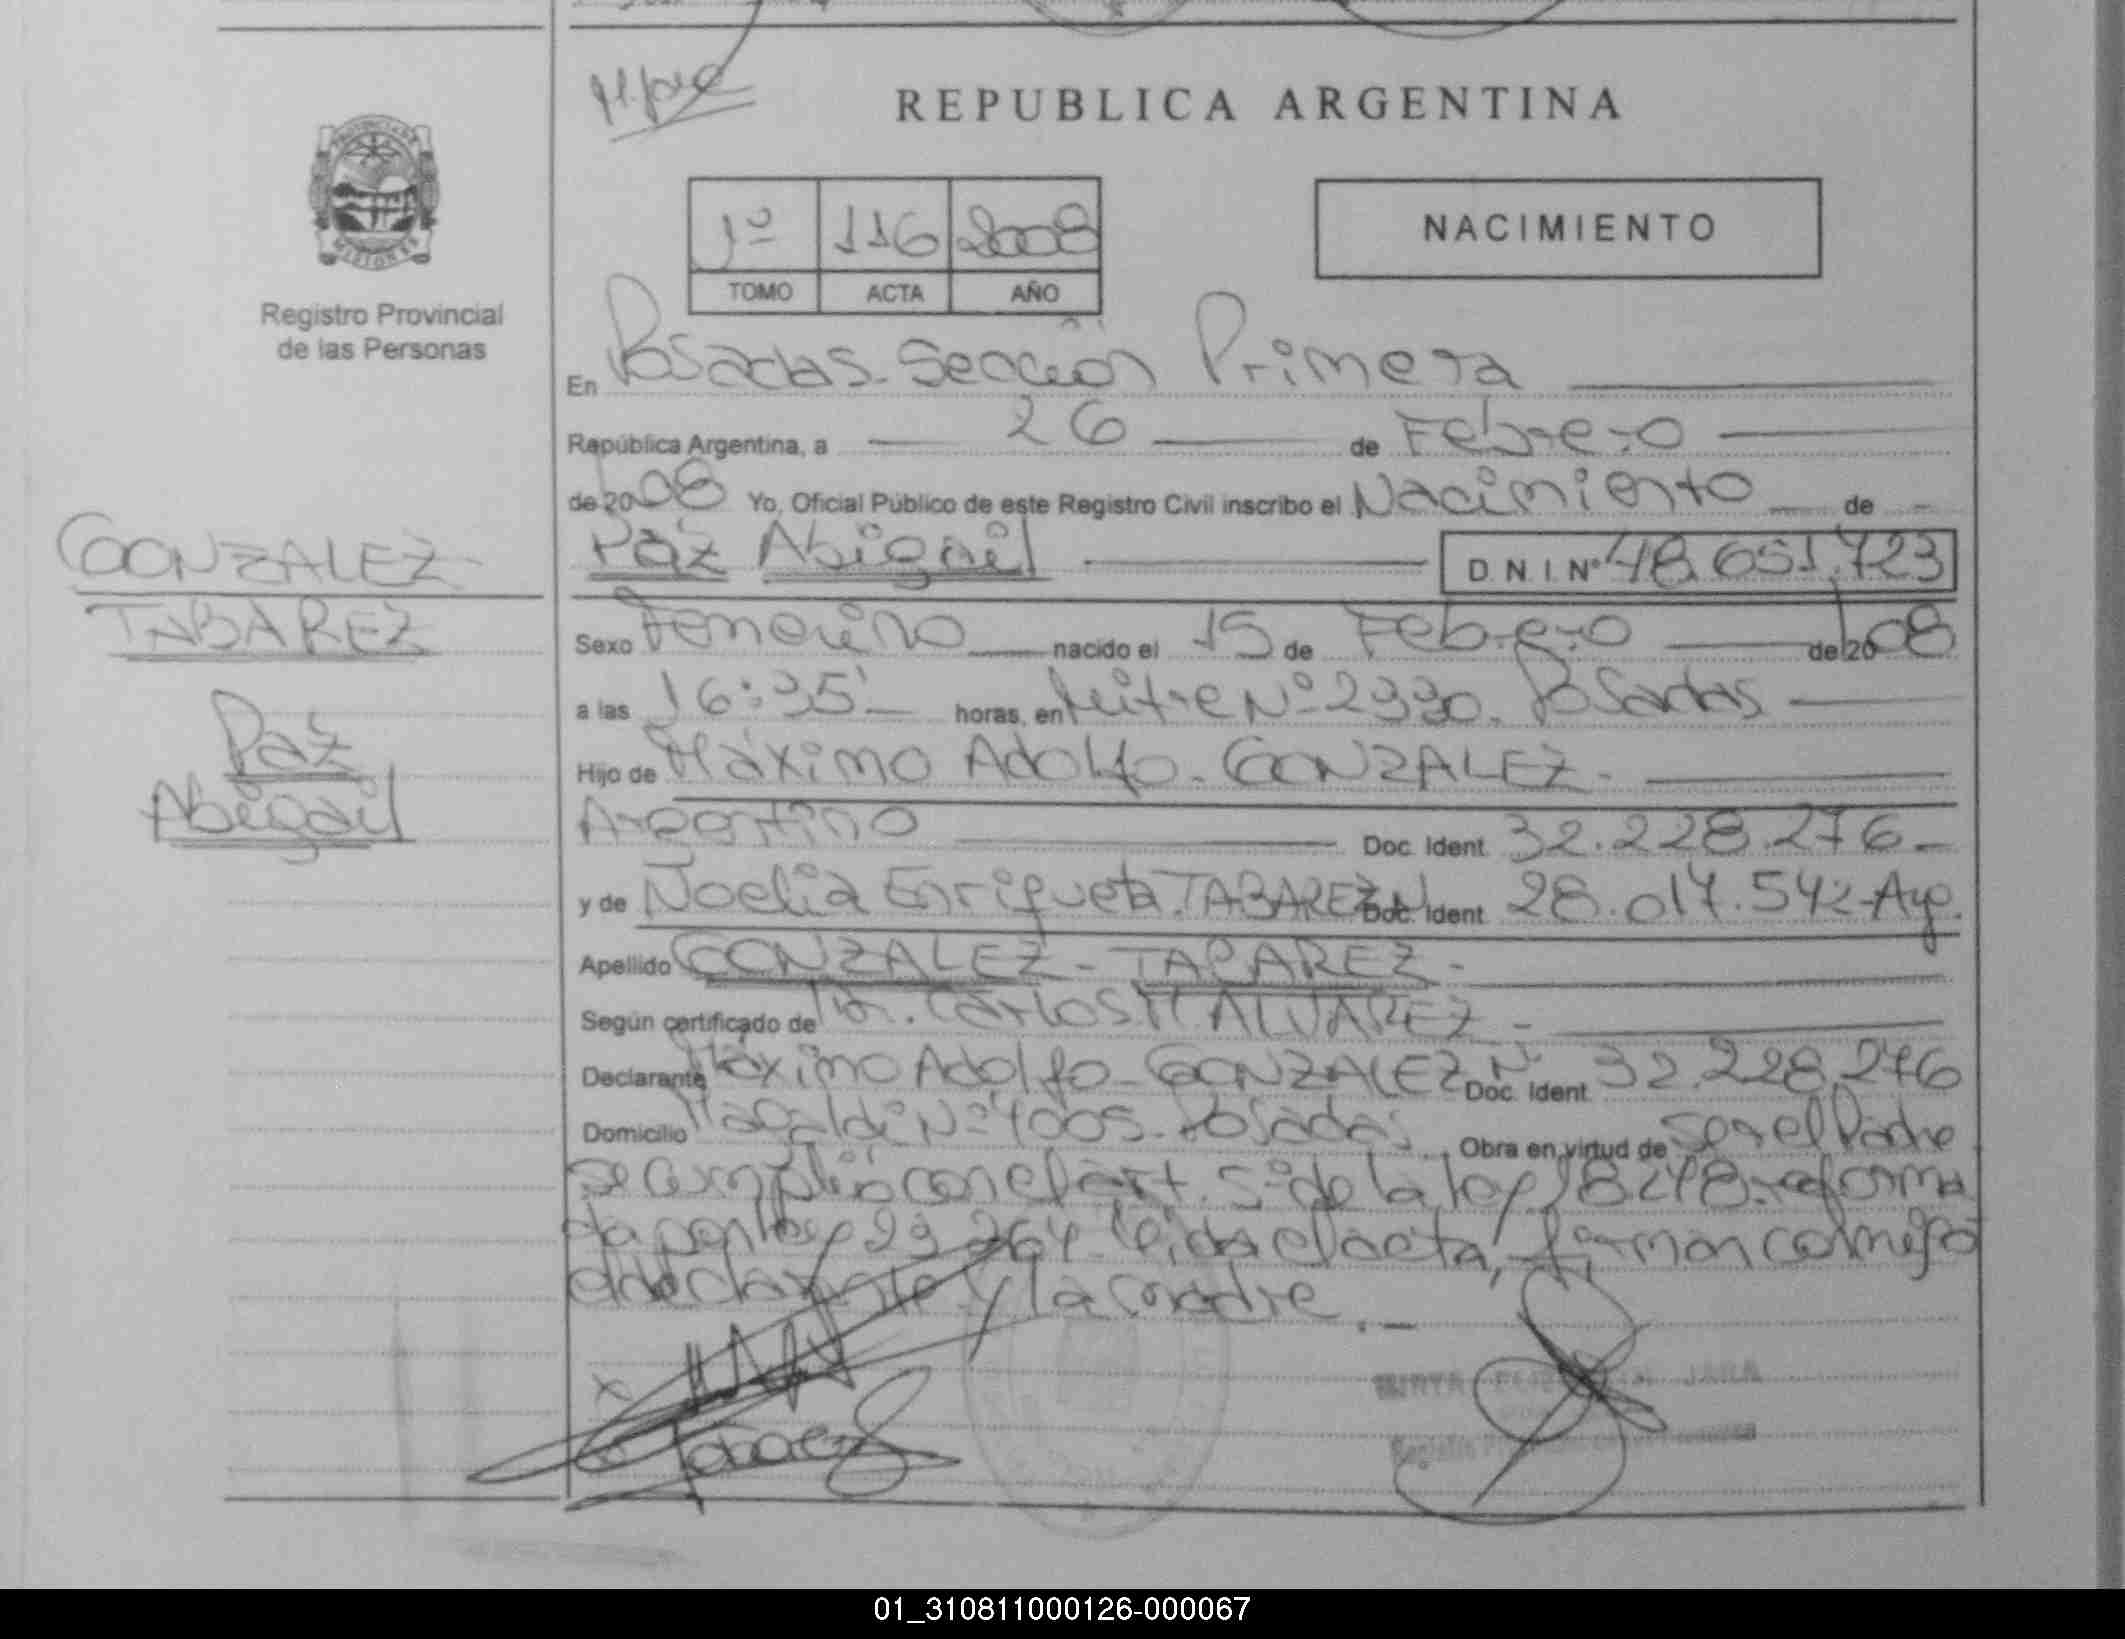 REPUBLICA ARGENTINA
PROVINCIA DE
MISIONES
Registro Provincial
de las Personas
1º 116 2008
TOMO ACTA AÑO
NACIMIENTO
En Posadas. Sección Primera
República Argentina, a 26 de Febrero
de 2008 Yo, Oficial Público de este Registro Civil inscribo el Nacimiento de
Paz Abigail D.N.I. Nº 48.651.723
GONZALEZ
TABAREZ
Paz
Abigail
Sexo Femenino nacido el 15 de Febrero de 2008
a las 16:35' horas, en Mitre Nº 2330. Posadas
Hijo de Máximo Adolfo. GONZALEZ.
Argentino Doc. Ident. 32.228.276.-
y de Noelia Enriqueta. TABAREZ Doc. Ident. 28.017.542-Arg.
Apellido GONZALEZ - TABAREZ -
Según certificado de Dr. Carlos M ALVAREZ -
Declarante Máximo Adolfo GONZALEZ Doc. Ident. Nº 32.228.276
Domicilio Nº 4005. Posadas. Obra en virtud de ser el Padre
se cumplió con el art. 5º de la ley 18248 reforma
da por ley 23.264 Leida el acta, firman conmigo
el declarante y la madre. -
JARA
01_310811000126-000067